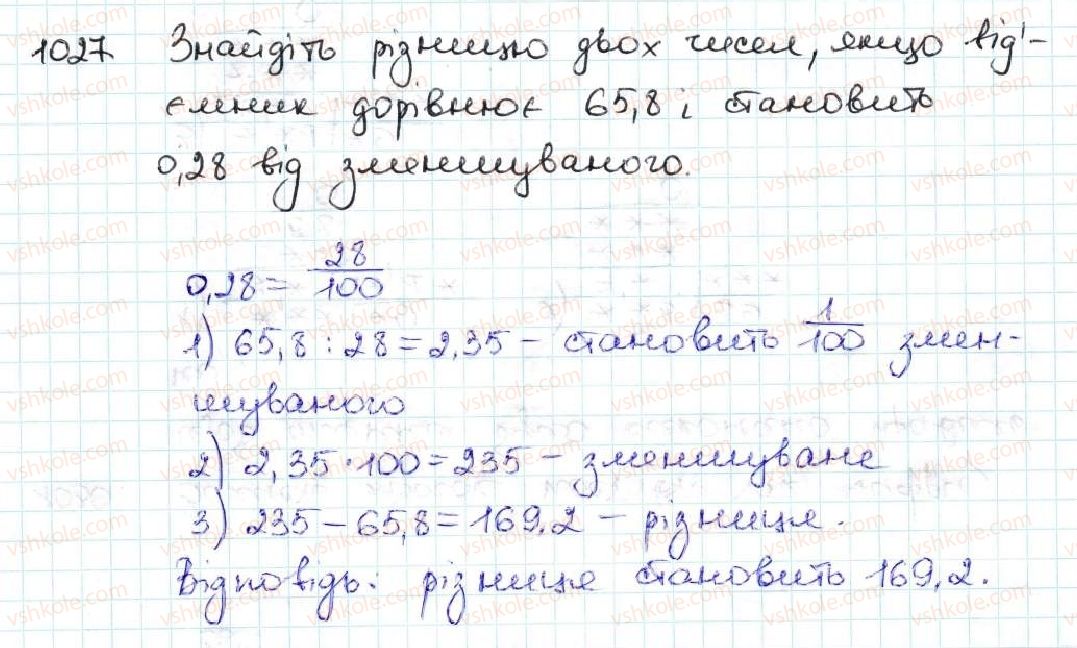 1027 Знайдіть різницю двох чисел, якщо від'-
ємник дорівнює 65,8 і становить
0,28 від зменшуваного.
0,28 = 28/100
1) 65,8 : 28 = 2,35 – становить 1/100 змен-
шуваного
2) 2,35 · 100 = 235 – зменшуване
3) 235 – 65,8 = 169,2 – різниця.
Відповідь: різниця становить 169,2.